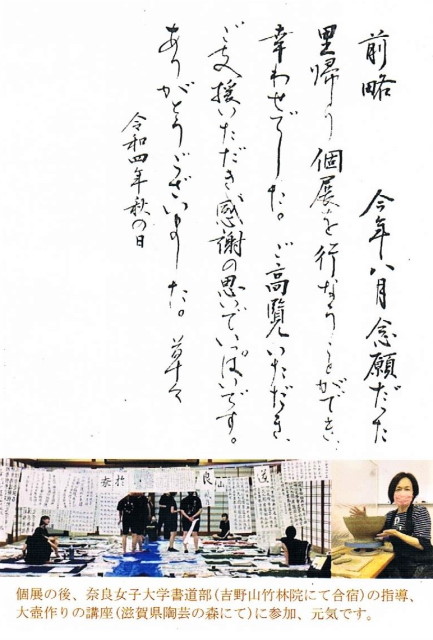 前略　今年八月念願だった
里帰り個展を行なうことができ、
幸わせでした。ご高覧いただき、
ご支援いただき感謝の思いでいっぱいです。
ありがとうございました。草々
令和四年秋の日
個展の後、奈良女子大学書道部(吉野山竹林院にて合宿)の指導、
大壺作りの講座(滋賀県陶芸の森にて)に参加、元気です。